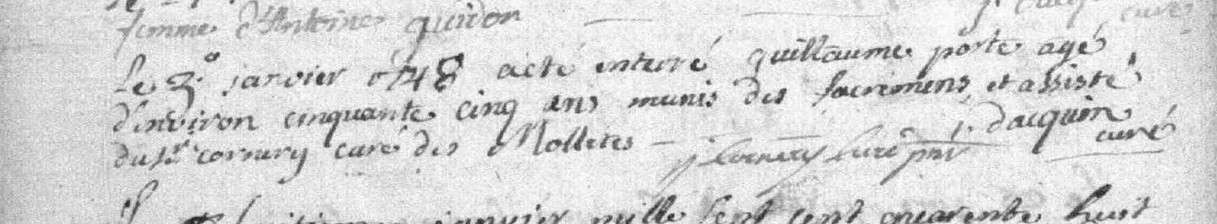 femme d'Antoine guidon
curé
Le 3.e janvier 1748 a eté enterré guillaume porte agé
d'environ cinquante cinq ans munis des sacremens et assisté
du Sr cornery curé des Molletes — j cornery curé pnt J. dacquin
curé
janvier mille sept cent quarente huit